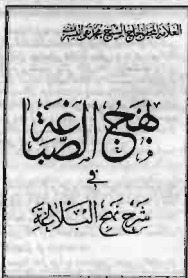 العلامة المحقق الحاج الشيخ محمد تقي التستري
بهج الصباغة
في
شرح نهج البلاغة